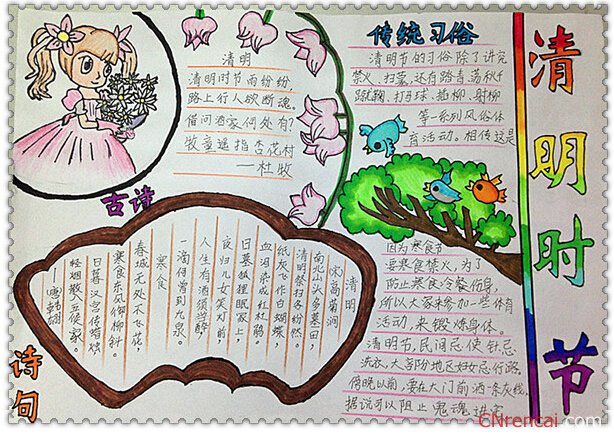 清明时节
传统习俗
清明节的习俗除了讲究
禁火、扫墓,还有踏青、荡秋千
蹴鞠、打马球、插柳、射柳
等一系列风俗体
育活动。相传这是
因为寒食节
要寒食禁火,为了
防止寒食冷餐伤身,
所以大家来参加一些体育
活动,来锻炼身体。
清明节,民间忌使针忌
洗衣,大部分地区妇女忌行路。
傍晚以前,要在大门前洒一条灰线,
据说可以阻止鬼魂进宅
清明
清明时节雨纷纷,
路上行人欲断魂。
借问酒家何处有?
牧童遥指杏花村
—杜牧
古诗
清明
宋·高菊涧
南北山头多墓田,
清明祭扫各纷然。
纸灰飞作白蝴蝶,
血泪染成红杜鹃。
日暮狐狸眠冢上,
夜归儿女笑灯前,
人生有酒须当醉,
一滴何曾到九泉。
寒食
春城无处不飞花
寒食东风御柳斜。
日暮汉宫传蜡烛
轻烟散入五侯家。
诗句
CNrencai.com